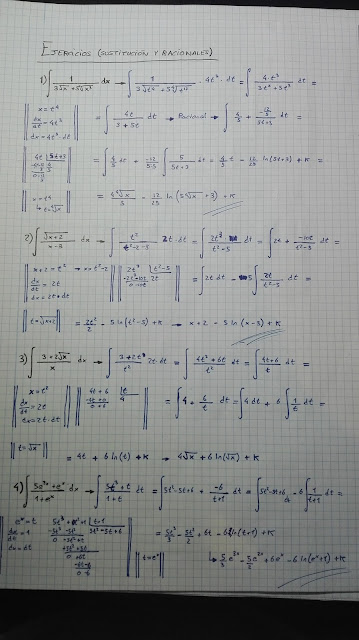 EJERCICIOS (SUSTITUCIÓN Y RACIONALES)
1) ∫ 1 / (3√x + 5⁴√x³) dx → ∫ 1 / (3√t⁴ + 5⁴√t¹²) · 4t³ · dt = ∫ 4·t³ / (3t² + 5t³) dt =
x = t⁴
dx/dt = 4t³
dx = 4t³·dt
= ∫ 4t / (3 + 5t) dt → Racional → ∫ 4/5 + (-12/5) / (5t+3) dt =
4t |5t+3
= ∫ 4/5 dt + -12/5·5 ∫ 5 / (5t+3) dt = 4/5 t - 12/25 ln(5t+3) + K =
x = t⁴
↳ t = ⁴√x
= 4⁴√x / 5 - 12/25 ln(5⁴√x + 3) + K
2) ∫ √(x+2) / (x-3) dx → ∫ t² / (t²-2-3) 2t·dt = ∫ 2t³ / (t²-5) dt = ∫ 2t + -10t / (t²-5) dt =
x + 2 = t² → x = t² - 2
dx/dt = 2t
dx = 2t·dt
2t³ |t²-5
= ∫ 2t dt - 5 ∫ 2t / (t²-5) dt =
t = √(x+2)
= 2t²/2 - 5 ln(t²-5) + K → x + 2 - 5 ln(x-3) + K
3) ∫ (3 + 2√x) / x dx → ∫ (3 + 2t) / t² 2t·dt = ∫ (4t² + 6t) / t² dt = ∫ (4t+6) / t dt =
x = t²
dx/dt = 2t
dx = 2t·dt
4t + 6 |t
-4t + 0 4
0 + 6
= ∫ 4 + 6/t dt = ∫ 4 dt + 6 ∫ 1/t dt =
t = √x
= 4t + 6 ln(t) + K → 4√x + 6 ln(√x) + K
4) ∫ (5e³ˣ + eˣ) / (1 + eˣ) dx → ∫ (5t³ + t) / (1 + t) dt = ∫ 5t² - 5t + 6 + -6 / (t+1) dt = ∫ 5t² - 5t + 6 dt - 6 ∫ 1 / (t+1) dt =
eˣ = t
= 5t³/3 - 5t²/2 + 6t - 6 ln(t+1) + K
t = eˣ
↳ 5/3 e³ˣ - 5/2 e²ˣ + 6eˣ - 6 ln(eˣ+1) + K